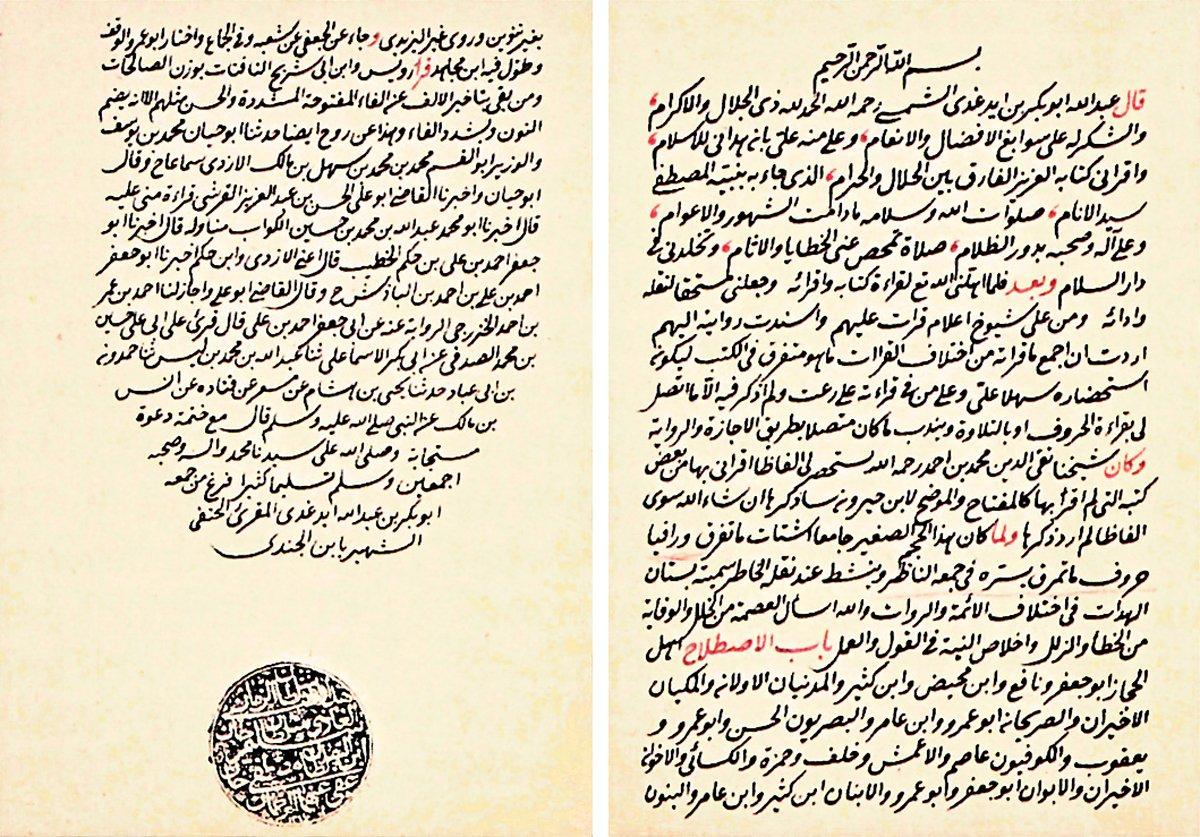 بسم الله الرحمن الرحيم
قال عبد الله ابو بكر بن ايدغدى الشمسي رحمه الله الحمد لله ذى الجلال والاكرام
والشكر له على سوابغ الافضال والانعام وعلى منه على بانه هدانى للاسلام
واقرانى كتابه العزيز الفارق بين الحلال والحرام الذى جاء به نبيه المصطفى
سيد الانام صلوات الله وسلامه ما دامت الشهور والاعوام
وعلى آله وصحبه بدور الظلام صلاة تمحص عنى الخطايا والاثام وتخلدنى فى
دار السلام وبعد فلما اهلنى الله تع لقراءة كتابه واقرائه وجعلنى مستحقا لنقله
وادائه ومن على شيوخ اعلام قرات عليهم واسندت روايته اليهم
اردت ان اجمع ما قراته من اختلاف القراات ما هو متفرق فى الكتب ليكون
استحضاره سهلا على وعلى من فى قراءته على رعت ولم اذكر فيه الا ما اتصل
لى بقراءة الحروف او بالتلاوة وبندب ما كان متصلا بطريق الاجازة والرواية
وكان شيخنا تقى الدين محمد بن احمد رحمه الله يستحصر لى الفاظا اقرانى بها من بعض
كتبه التى لم اقرا بها كالمفتاح والموضح لابن خيرون ساذكرها ان شاء الله سوى
الفاظا لم ارد ذكرها ولما كان هذا الحجم الصغير جامعا اشتات ما تفرق وراقيا
حروف ما تمزق يسره فى جمعه الناظر وينشط عند نقله الخاطر سميته بستان
الهداة فى اختلاف الائمة والرواة والله اسال العصمة من الخلل والوقاية
من الخطا والزلل واخلاص النية فى القول والعمل باب الاصطلاح اهل
الحجاز ابو جعفر ونافع وابن محيض وابن كثير والمدنيان الاولانه والمكيان
الاخيران والصريحانه ابو عمرو وابن عامر والبصريون الحسن وابو عمرو و
يعقوب والكوفيون عاصم والاعمش وخلف وحمزة والكسائى والاخوانه
الاخيران والابوان ابو جعفر وابو عمرو والابنان ابن كثير وابن عامر والبنون
بغير تنوين وروى غير اليزيدى وجاء عن الجعفى عن شعبه وفى الجاع واختار ابو عمرو الوقف
وطول فيه ابن مجاهد قرا رويس وابن ابى شريح النافثات بوزن الصالحات
ومن بقى بتاخير الالف عن الفاء المفتوحة المشددة والحسن مثلهم الا انه يضم
النون ويشدد الفاء وهذا عن روح ايضا حدثنا ابو حيان محمد بن يوسف
والوزير ابو القسم محمد بن محمد بن سهل بن مالك الازدى سماعا ح وقال
ابو حيان واخبرنا القاضى ابو على الحسن بن عبد العزيز القرشى قراءة منى عليه
قال اخبرنا ابو محمد عبد الله بن محمد بن حسين الكواب مناوله قال اخبرنا ابو
جعفر احمد بن على بن حكم الخطيب قال اعنى الازدى وابن حكم اخبرنا ابو جعفر
احمد بن على بن احمد بن الباذش ح وقال القاضى ابو على واجاز لنا احمد بن عمر
بن احمد الخزرجى الرواية عنه عن ابى جعفر احمد بن على قال قرئ على ابى على حسين
بن محمد الصدفى عن ابى بكر الاسما على ثنا عبد الله بن محمد بن ليس ثنا حمدونه
بن ابى عباد حدثنا يحيى بن هشام عن مسعر عن قتاده عن انس
بن مالك عن النبى صلى الله عليه وسلم قال مع ختمة دعوة
مستجابة وصلى الله على سيدنا محمد واله وصحبه
اجمعين وسلم تسليما كثيرا فرغ من جمعه
ابو بكر بن عبد الله ايدغدى المقرئ الحنفى
الشهير بابن الجندى